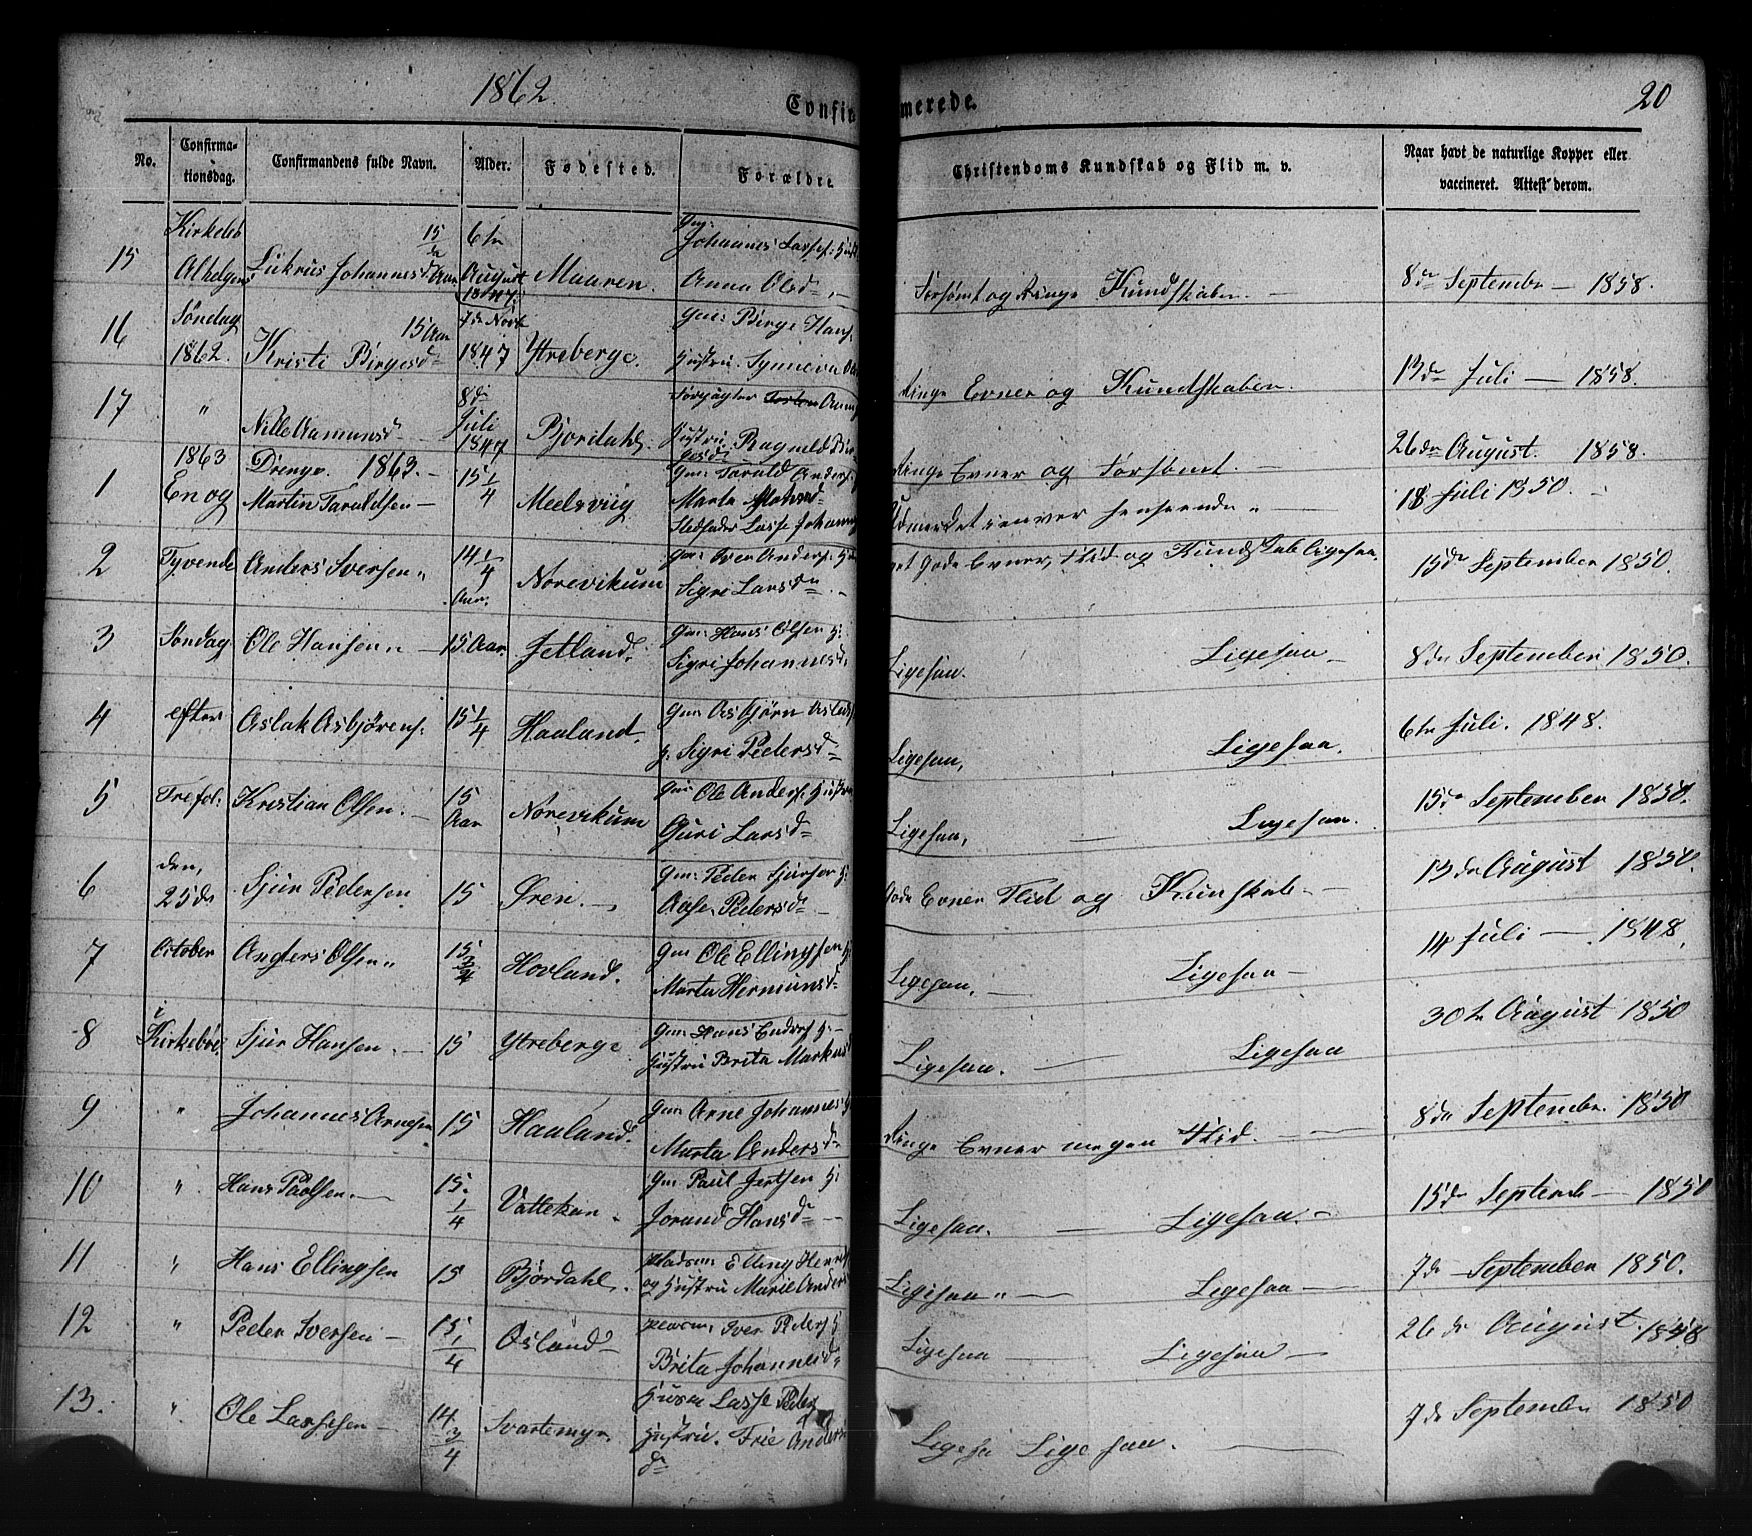 1862.
Confirmerede.
20
No.
Confirmationsdag.
Confirmandens fulde Navn.
Alder.
Fødested.
Forældre.
Christendoms Kundskab og Flid m. v.
Naar havt de naturlige Kopper eller vaccineret. Attest derom.
15 Kirkebø Alhelgens Johannesd 15 Aar 6te August 1847 Maaren. Gm: Johannes Lasses: Anna Olsd. Forsømt og Ringe Kundskaber. 8de September 1858.
16 Søndag 1862. Kristi Birgesd 15 Aar 7de 1847 Ytreberge. Gm: Birge Hans Hustru. Synneva Ringe Evner og Kundskaber. 13de Juli 1858.
17 " Nille Aamunsd 8de Juli 1847 Bjordahl. Hustru. Ragneld Ringe Evner og Forsømt. 26de August. 1858.
1863 Drenge. 1863.
1 En og Martin Taraldsen 15 1/4 Meelsviig Gm: Tarald Anders Marta Stedfader Lasse Johannes 18 Juli 1850.
2 Tyvende Anders Iversen " 14 1/4 Aar. Norevikum Gm: Iver Anders: Sigri Larsd Gode Evner, Flid og Kundskab ligesaa. 15de September 1850.
3 Søndag Ole Hansen " 15 Aar. Jetland. Gm: Hans Olsen H: Sigri Johannesd. Ligesaa. Ligesaa 8de September 1850.
4 efter Aslak Asbjørens: 15 1/4 Haaland. Gm: Asbjørn H. Sigri Pedersd Ligesaa, Ligesaa. 6te Juli. 1848.
5 Trefol: Kristian Olsen. 15 Aar Norevikum Gm: Ole Anders: Hustru Guri Larsd Ligesaa, Ligesaa. 15de September 1850.
6 den, 25de Sjur Pedersen 15 Øren. Gm: Peder Sjursen H: Aase Pedersd Gode Evner Flid og Kunskab. 13de August 1850.
7 October Anders Olsen " 15 3/4 Hovland. Gm Ole Ellingsen Marta Hermunsd Ligesaa. Ligesaa 14 Juli 1848.
8 i Kirkebøe Sjur Hansen. 15 Ytreberge Gm: Hans Endres H: Hustru Brita Markus Ligesaa. Ligesaa 30te August 1850
9 " Johannes Arnesen 15 Haaland. Gm Arne Johannes Marta Andersd Ringe Evner megen Flid. 8de September. 1850
10 " Hans Paulsen. 15. 1/4 Vattekar. Gm: Paul Jertsen H: Jorand Hansd Ligesaa. Ligesaa. 15de Septemb 1850
11 " Hans Ellingsen 15 Bjørdahl. pladsm: Elling Henrik og Hustru Marie Anders Ligesaa " Ligesaa 7de September 1850.
12 " Peder Iversen 15 1/4 Osland Iver Peders H Brita Johannesd Ligesaa Ligesaa 26de August. 1848
13. " Ole Lassesen 14 3/4 Svartemyr. Husm Lasse Peder Hustru. Anders d Ligesaa Ligesaa. 7de September 1850